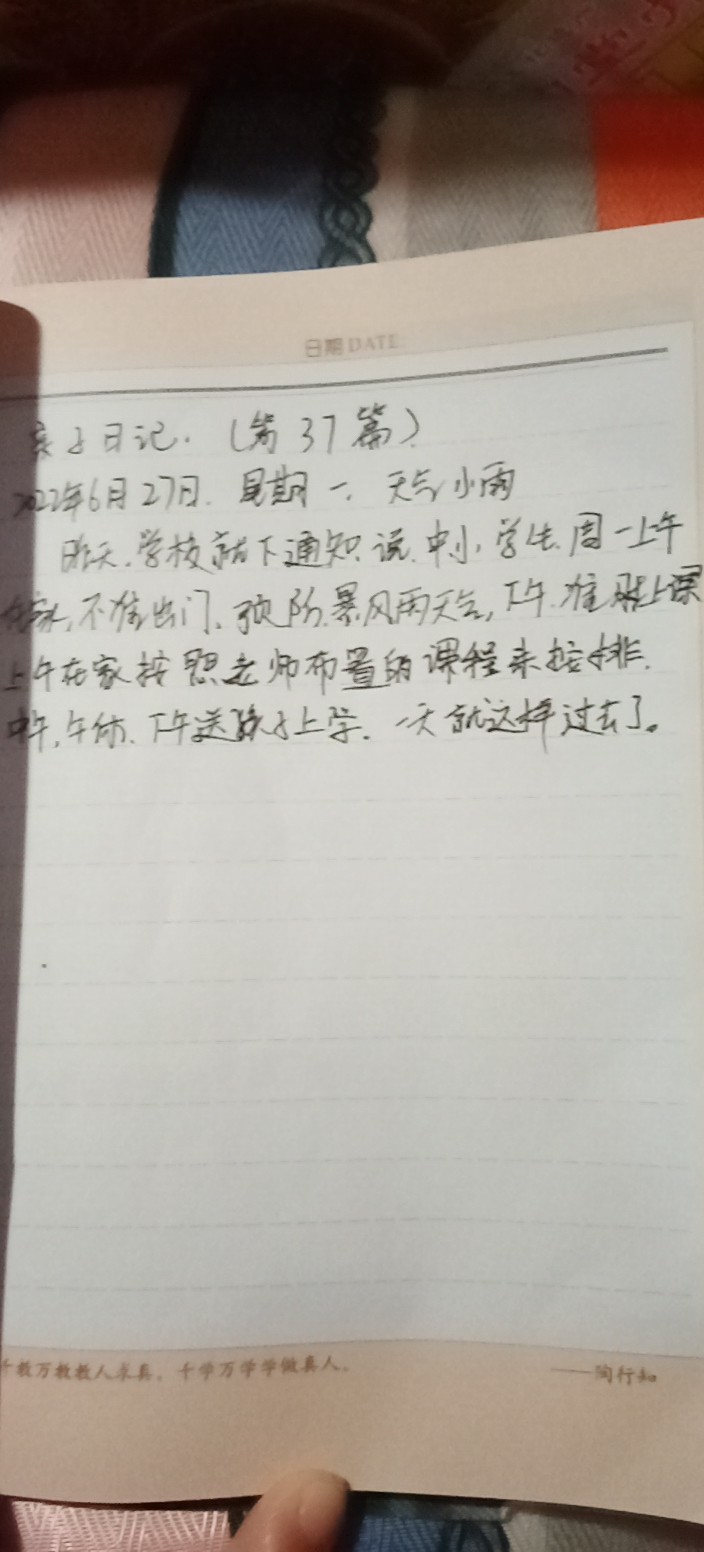 日期 DATE
亲子日记.(第37篇)
2022年6月27日. 星期一. 天气小雨
昨天.学校就下通知.说.中小,学生.周一上午
在家,不准出门.预防.暴风雨天气,下午.准时上课
上午在家按照老师布置的课程来安排.
中午.午休.下午送孩子上学.一天就这样过去了。
千教万教教人求真,千学万学学做真人。
——陶行知